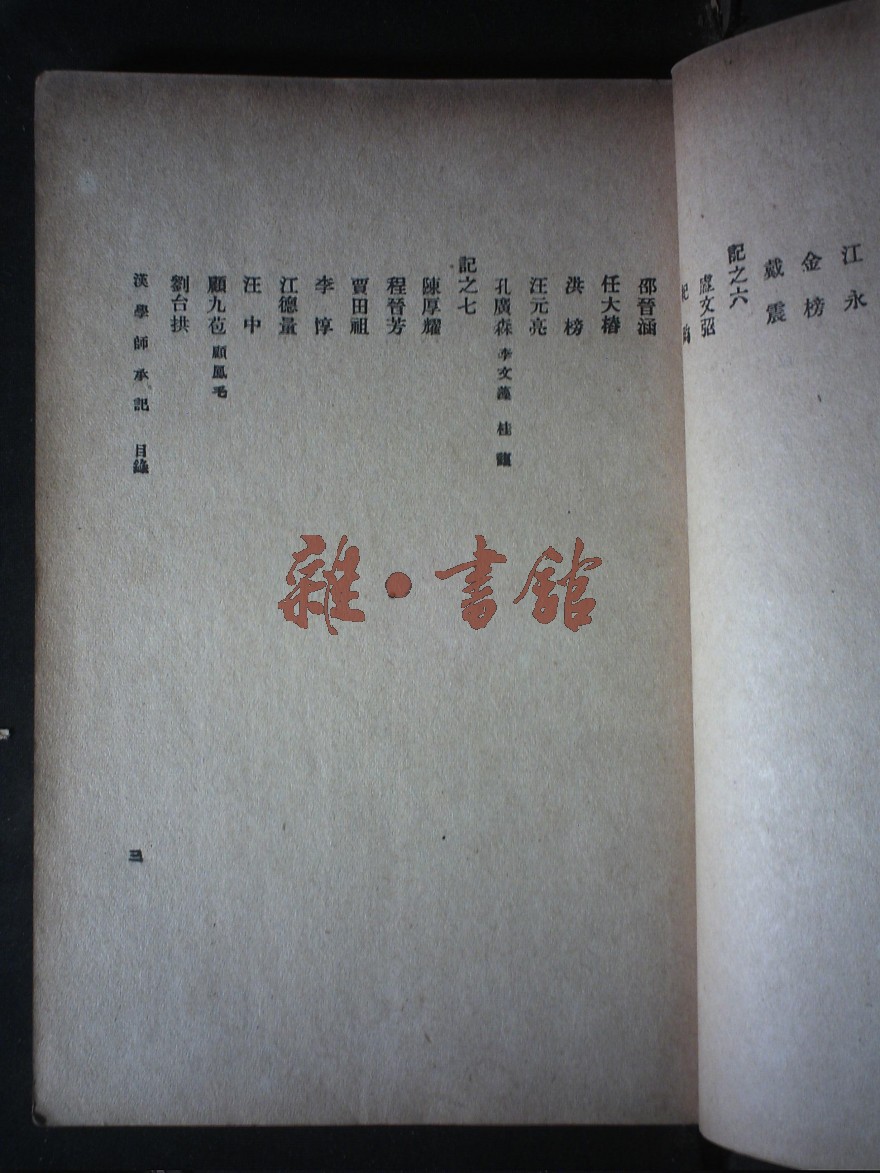 江永
金榜
戴震
記之六
盧文弨
邵晉涵
任大椿
洪榜
汪元亮
孔廣森 李文藻 桂馥
記之七
陳厚耀
程晉芳
賈田祖
李惇
江德量
汪中
顧九苞 顧鳳毛
劉台拱
漢學師承記 目錄
三
雜•書館